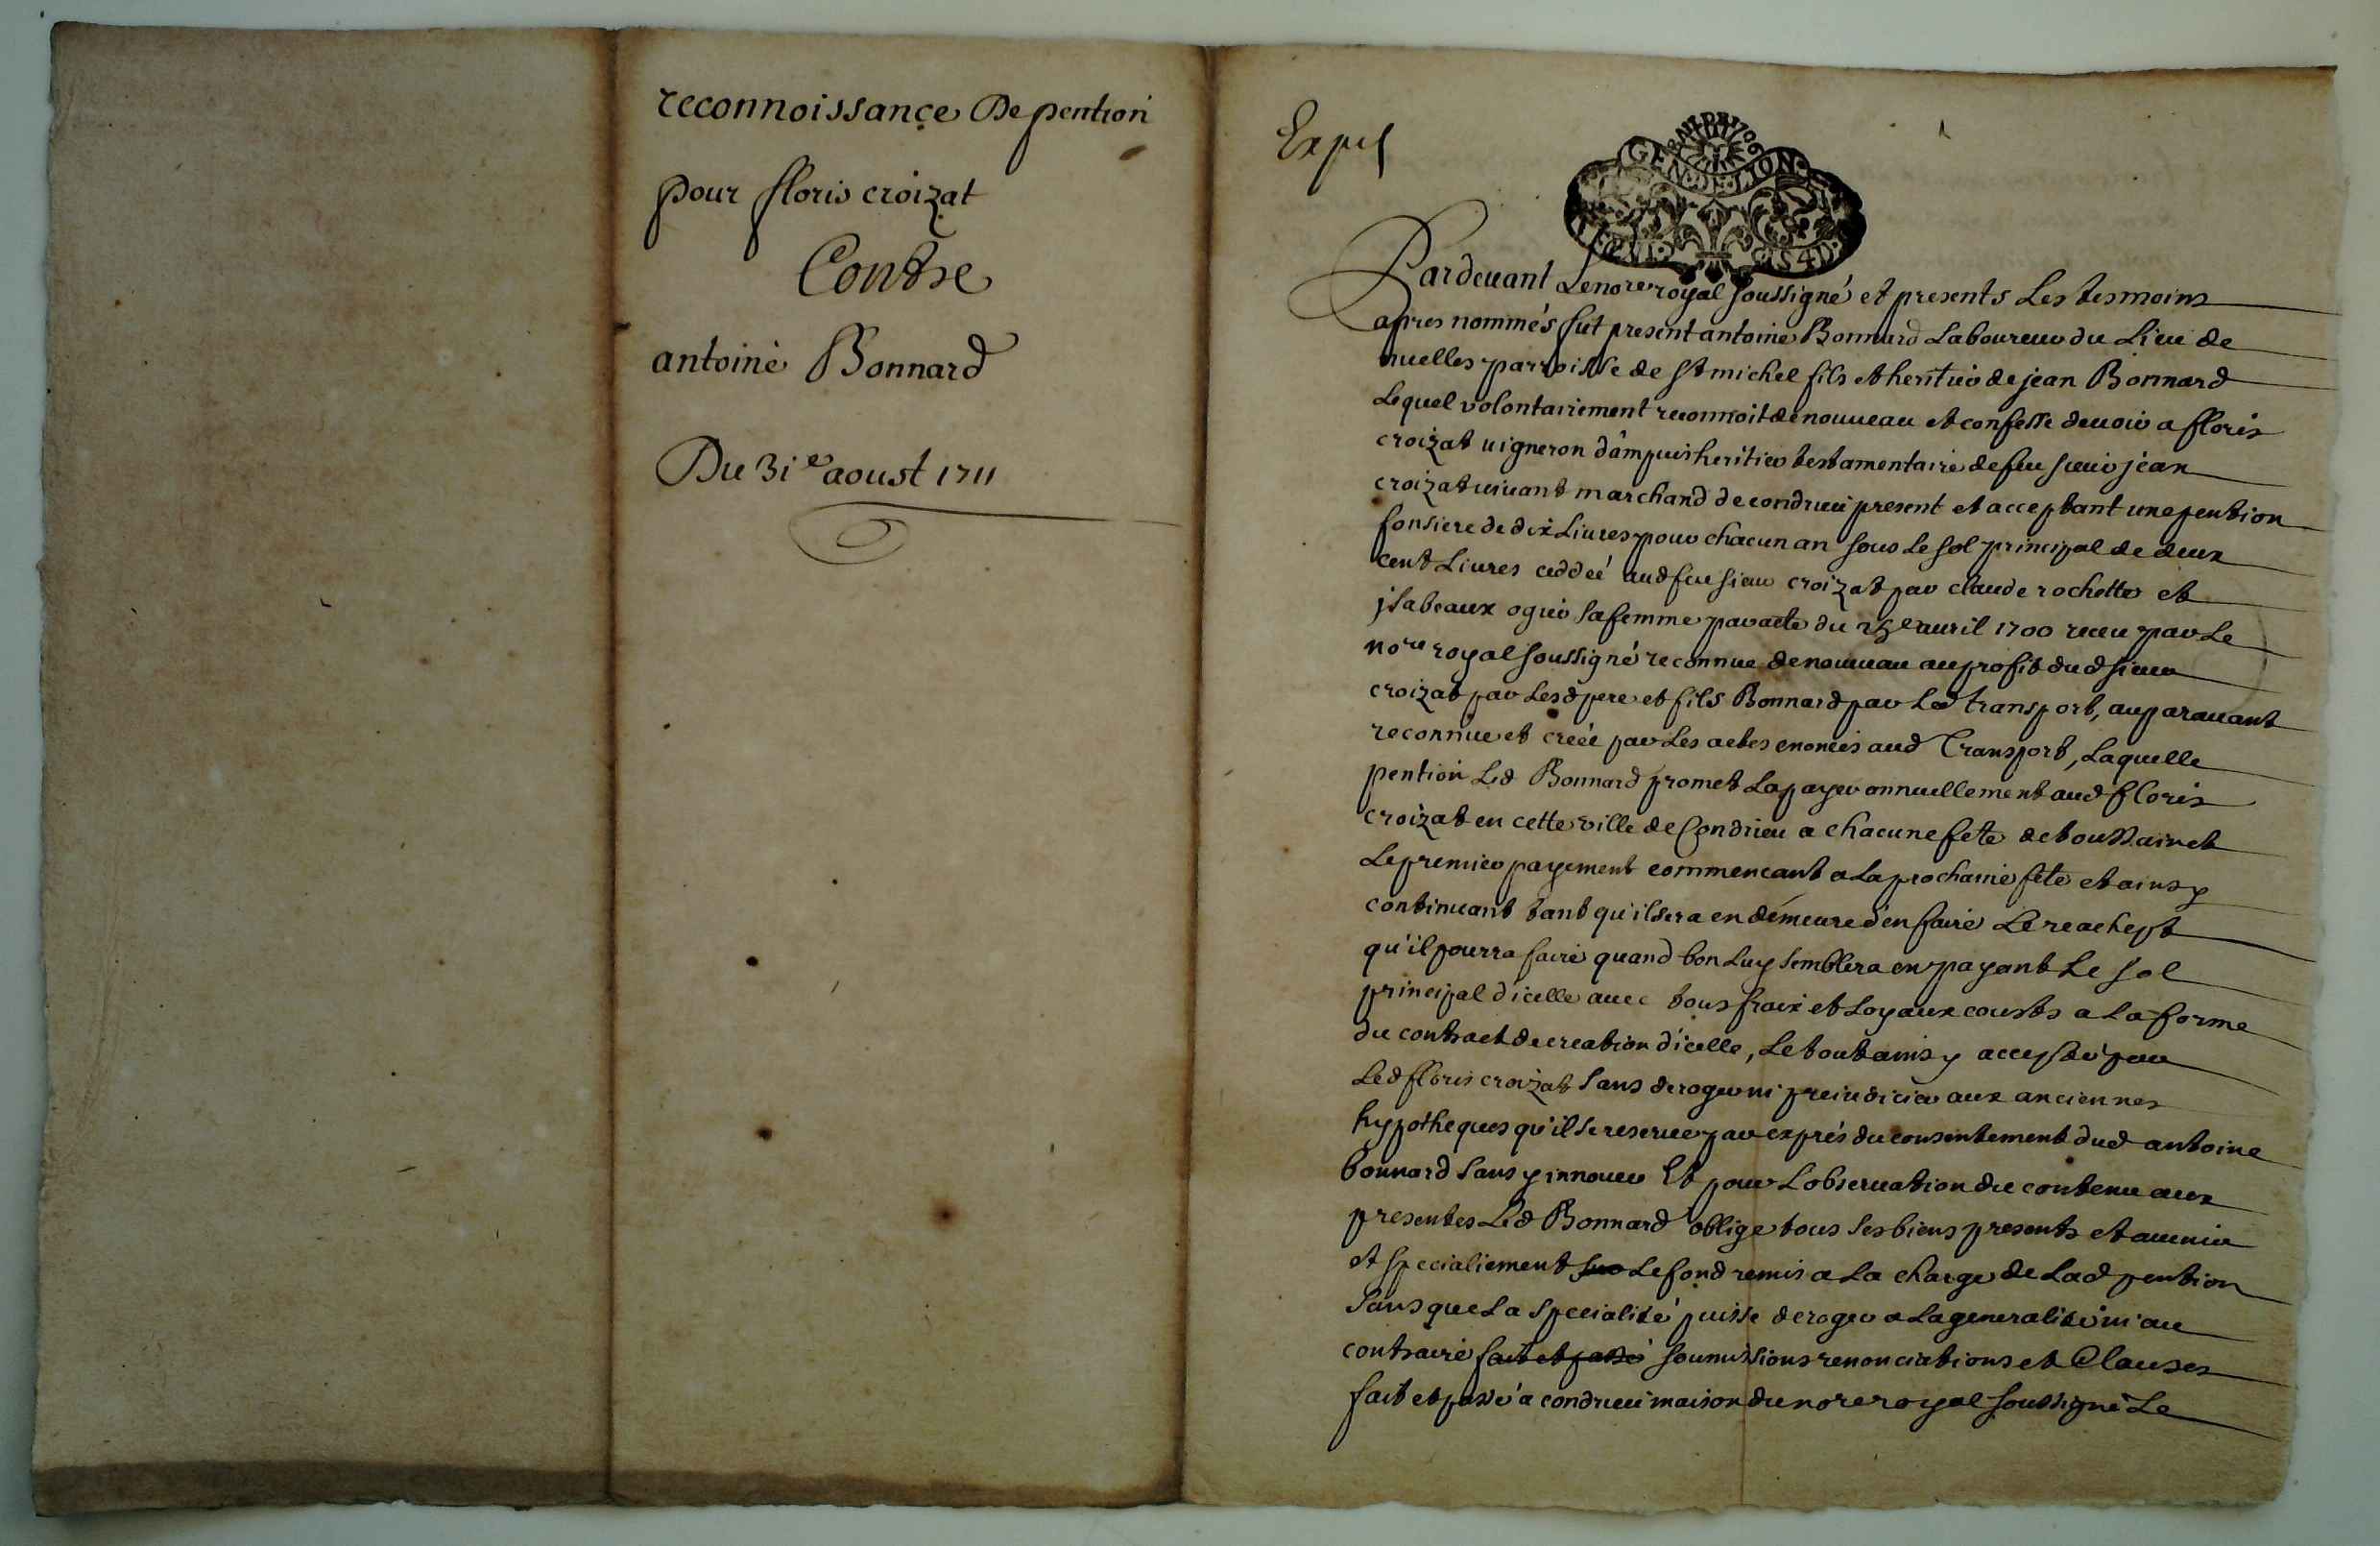 reconnoissance De pention
pour floris croizat
Contre
antoine Bonnard
Du 31e aoust 1711
GEN D LION
Pardeuant Le nore royal soussigné et presents Les tesmoins
apres nommés fut present antoine Bonnard Laboureur du Lieu de
nuelles parroisse de st michel fils et heritier de jean Bonnard
Lequel volontairement reconnoit de nouueau et confesse deuoir a floris
croizat uigneron d'ampuis heritier testamentaire de feu sieur jean
croizat uiuant marchand de condrieu present et acceptant une pention
fonsiere de dix Liures pour chacun an sous Le sol principal de deux
cent Liures ceddeé aud feu sieur croizat par claude rochette et
jsabeaux ogier sa femme par acte du 25e auril 1700 receu par Le
nore royal soussigné reconnue de nouueau au profit dud sieur
croizat par Lesd pere et fils Bonnard par Led transport, auparauant
reconnue et creée par Les actes enoncés aud Transport, Laquelle
pention Led Bonnard promet La payer annuellement aud floris
croizat en cette ville de Condrieu a chacune fete de toussainct
Le premier payement commencant a La prochaine fete et ainsy
continuant tant qu'il sera en demeure d'en faire Le reachept
qu'il pourra faire quand bon Luy semblera en payant Le sol
principal d'icelle auec tous fraix et Loyaux cousts a La forme
du contract de creation d'icelle, Le tout ainsy accepté par
Led floris croizat sans deroger ni preiudicier aux anciennes
hypotheques qu'il se reserue par exprés du consentement dud antoine
bonnard sans y innouer Et pour L'obseruation du contenu aux
presentes Led Bonnard oblige tous ses biens presents et auenir
et specialiement sur Le fond remis a La charge de Lad pention
sans que La specialité puisse deroger a La generalité ni au
contraire fait et passé soumissions renonciations et Clauses
fait et passé a condrieu maison du nore royal soussigné Le